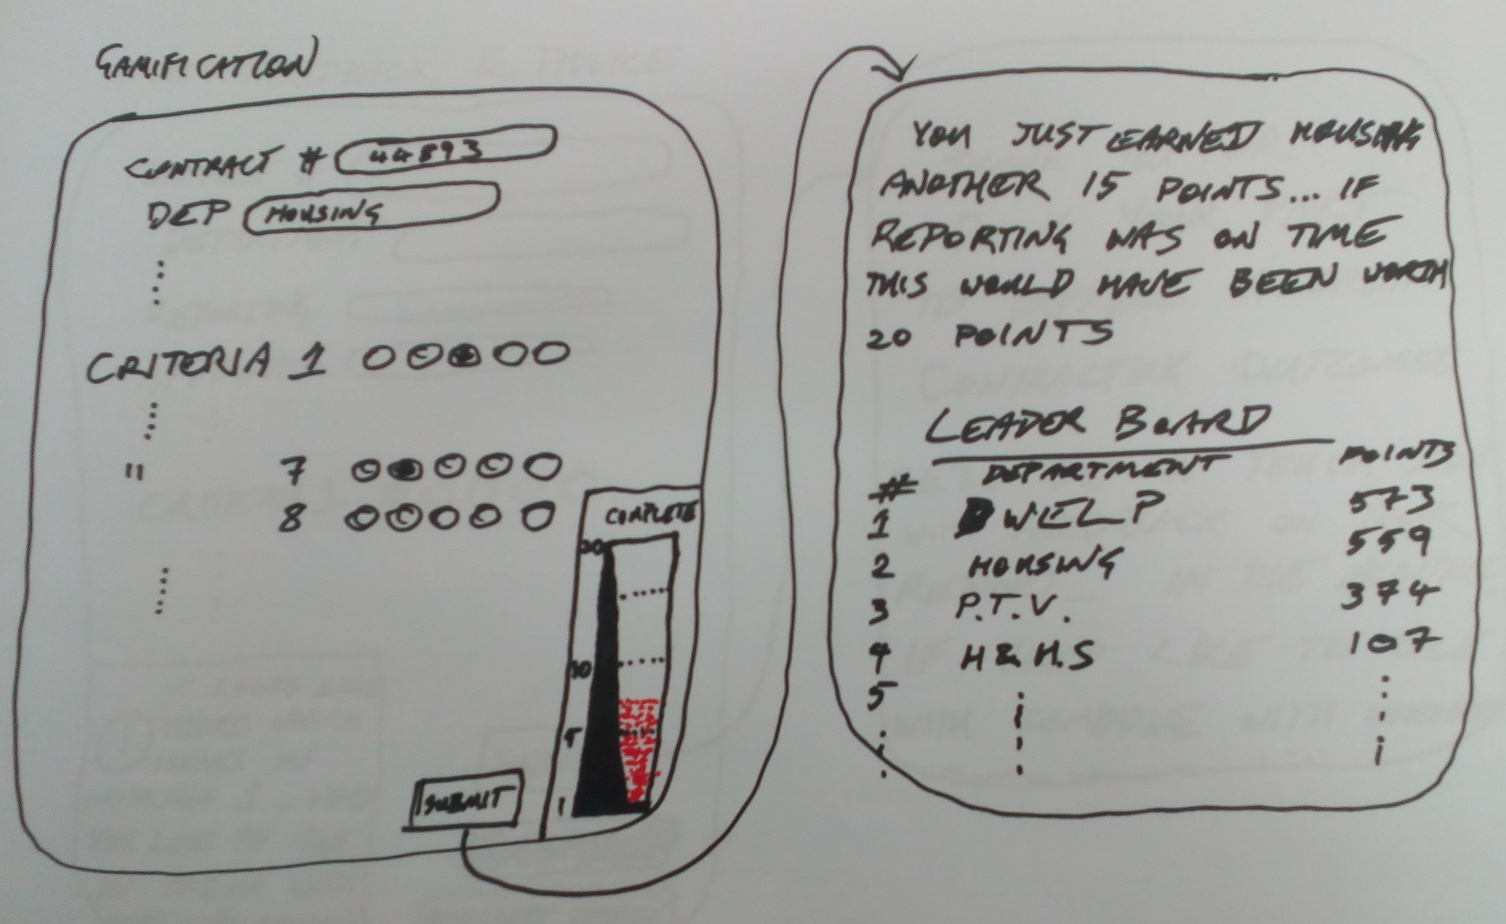 GAMIFICATION
CONTRACT # 44893
DEP HOUSING
CRITERIA 1
" 7
8
COMPLETE
20
10
5
1
SUBMIT
YOU JUST EARNED HOUSING
ANOTHER 15 POINTS... IF
REPORTING WAS ON TIME
THIS WOULD HAVE BEEN WORTH
20 POINTS
LEADER BOARD
# DEPARTMENT POINTS
1 DWELP 573
2 HOUSING 559
3 P.T.V. 374
4 H & H.S 107
5